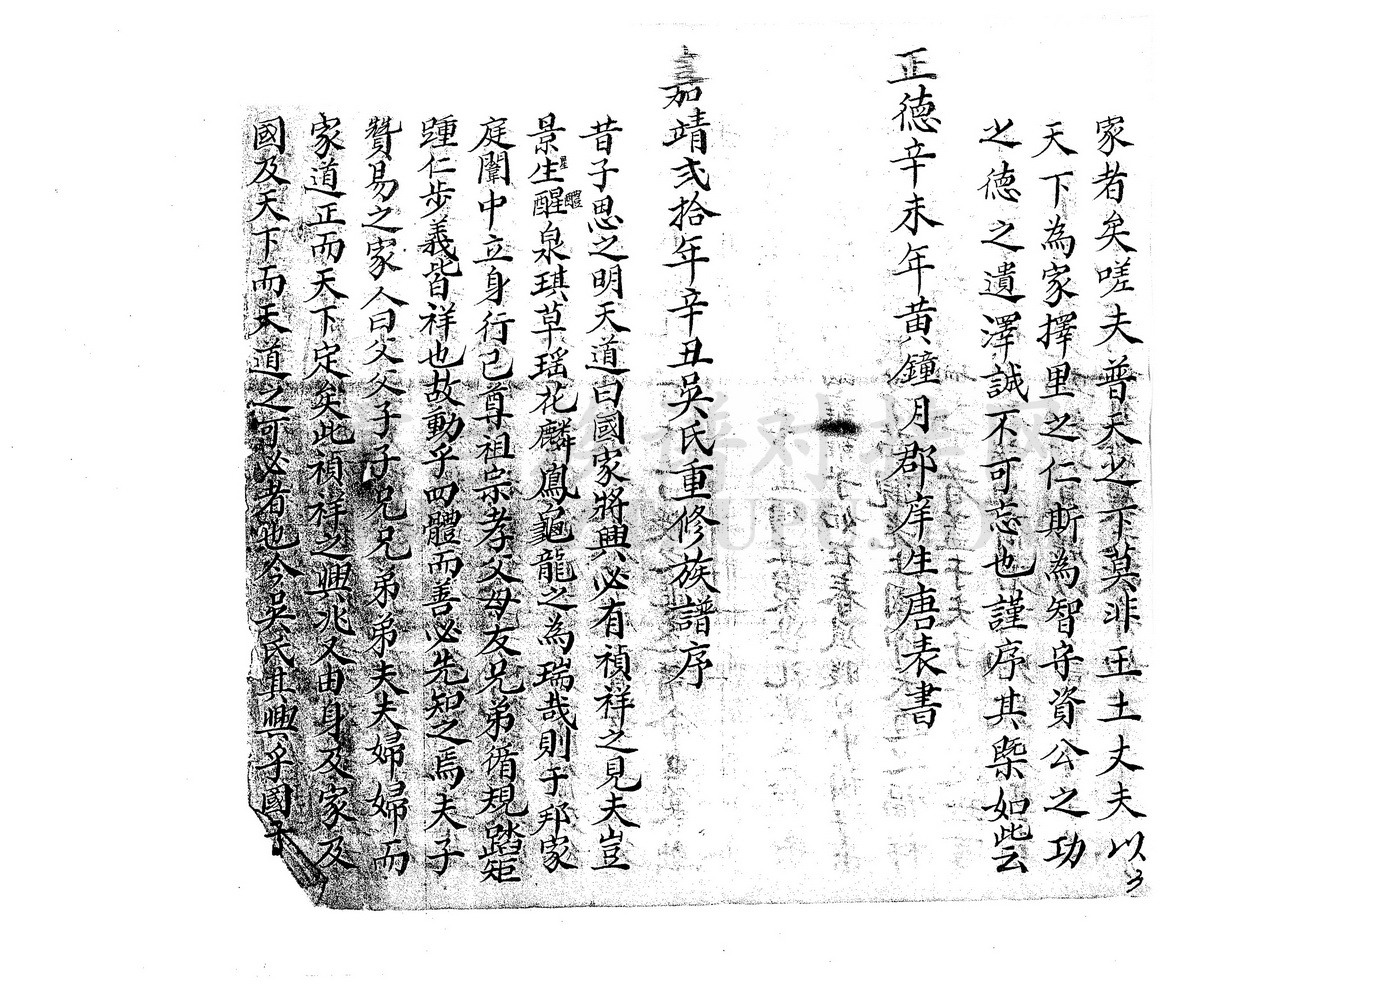 家者矣嗟夫普天之下莫非王土丈夫以
天下為家擇里之仁斯為智守資公之功
之德之遺澤誠不可忘也謹序其槩如此云
正德辛未年黃鐘月郡庠生唐表書
嘉靖弍拾年辛丑吳氏重修族譜序
昔子思之明天道曰國家將興必有禎祥之見夫豈
景星生醴醒泉琪草瑶花麟鳳龜龍之為瑞哉則于邦家
庭闈中立身行己尊祖宗孝父母友兄弟循規踏矩
踵仁步義皆祥也故動乎四體而善必先知之焉夫子
贊易之家人曰父父子子兄兄弟弟夫夫婦婦而
家道正而天下定矣此禎祥之興兆又由身及家及
國及天下而天道之可必者也今吳氏其興乎國